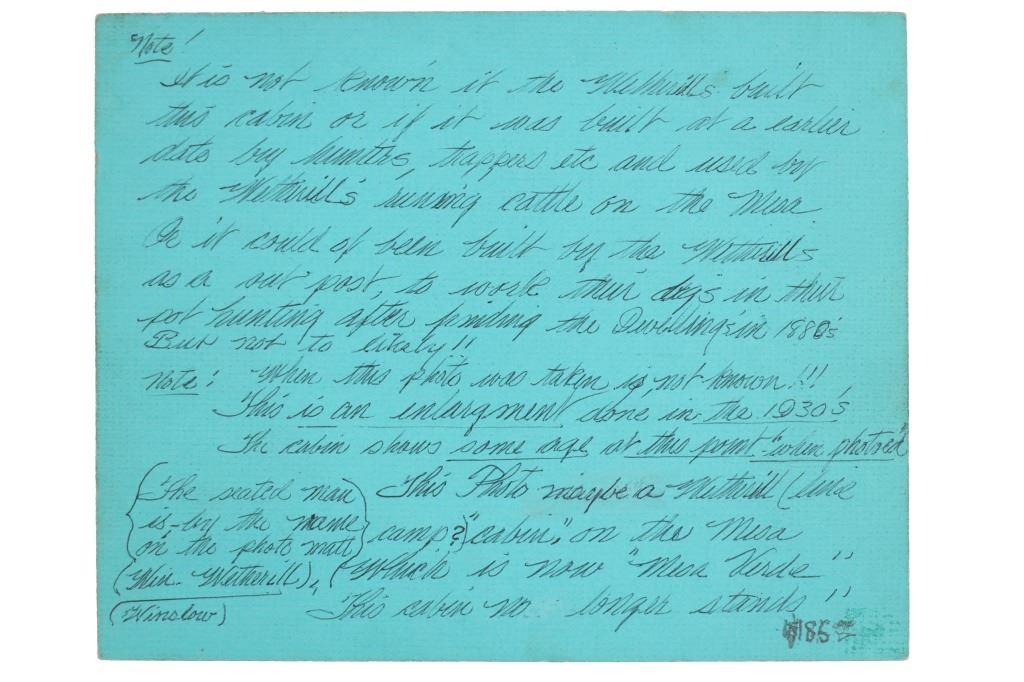 Note!
It is not known if the Wetherills built
this cabin or if it was built at a earlier
date by hunters, trappers etc and used by
the Wetherill's running cattle on the Mesa.
Or it could of been built by the Wetherills
as a out post, to work their digs in their
pot hunting after finding the Dwelling's in 1880's
But not to likely!!
Note! When this photo was taken is not known!!!
This is an enlargment done in the 1930's
The cabin shows some age at this point "when photoed"
(The seated man
is-by the name
on the photo matt)
(Win-Wetherill),
(Winslow)
This Photo maybe a Wetherill (line
camp?) "cabin". on the Mesa
(Which is now "Mesa Verde"
This cabin no longer stands"